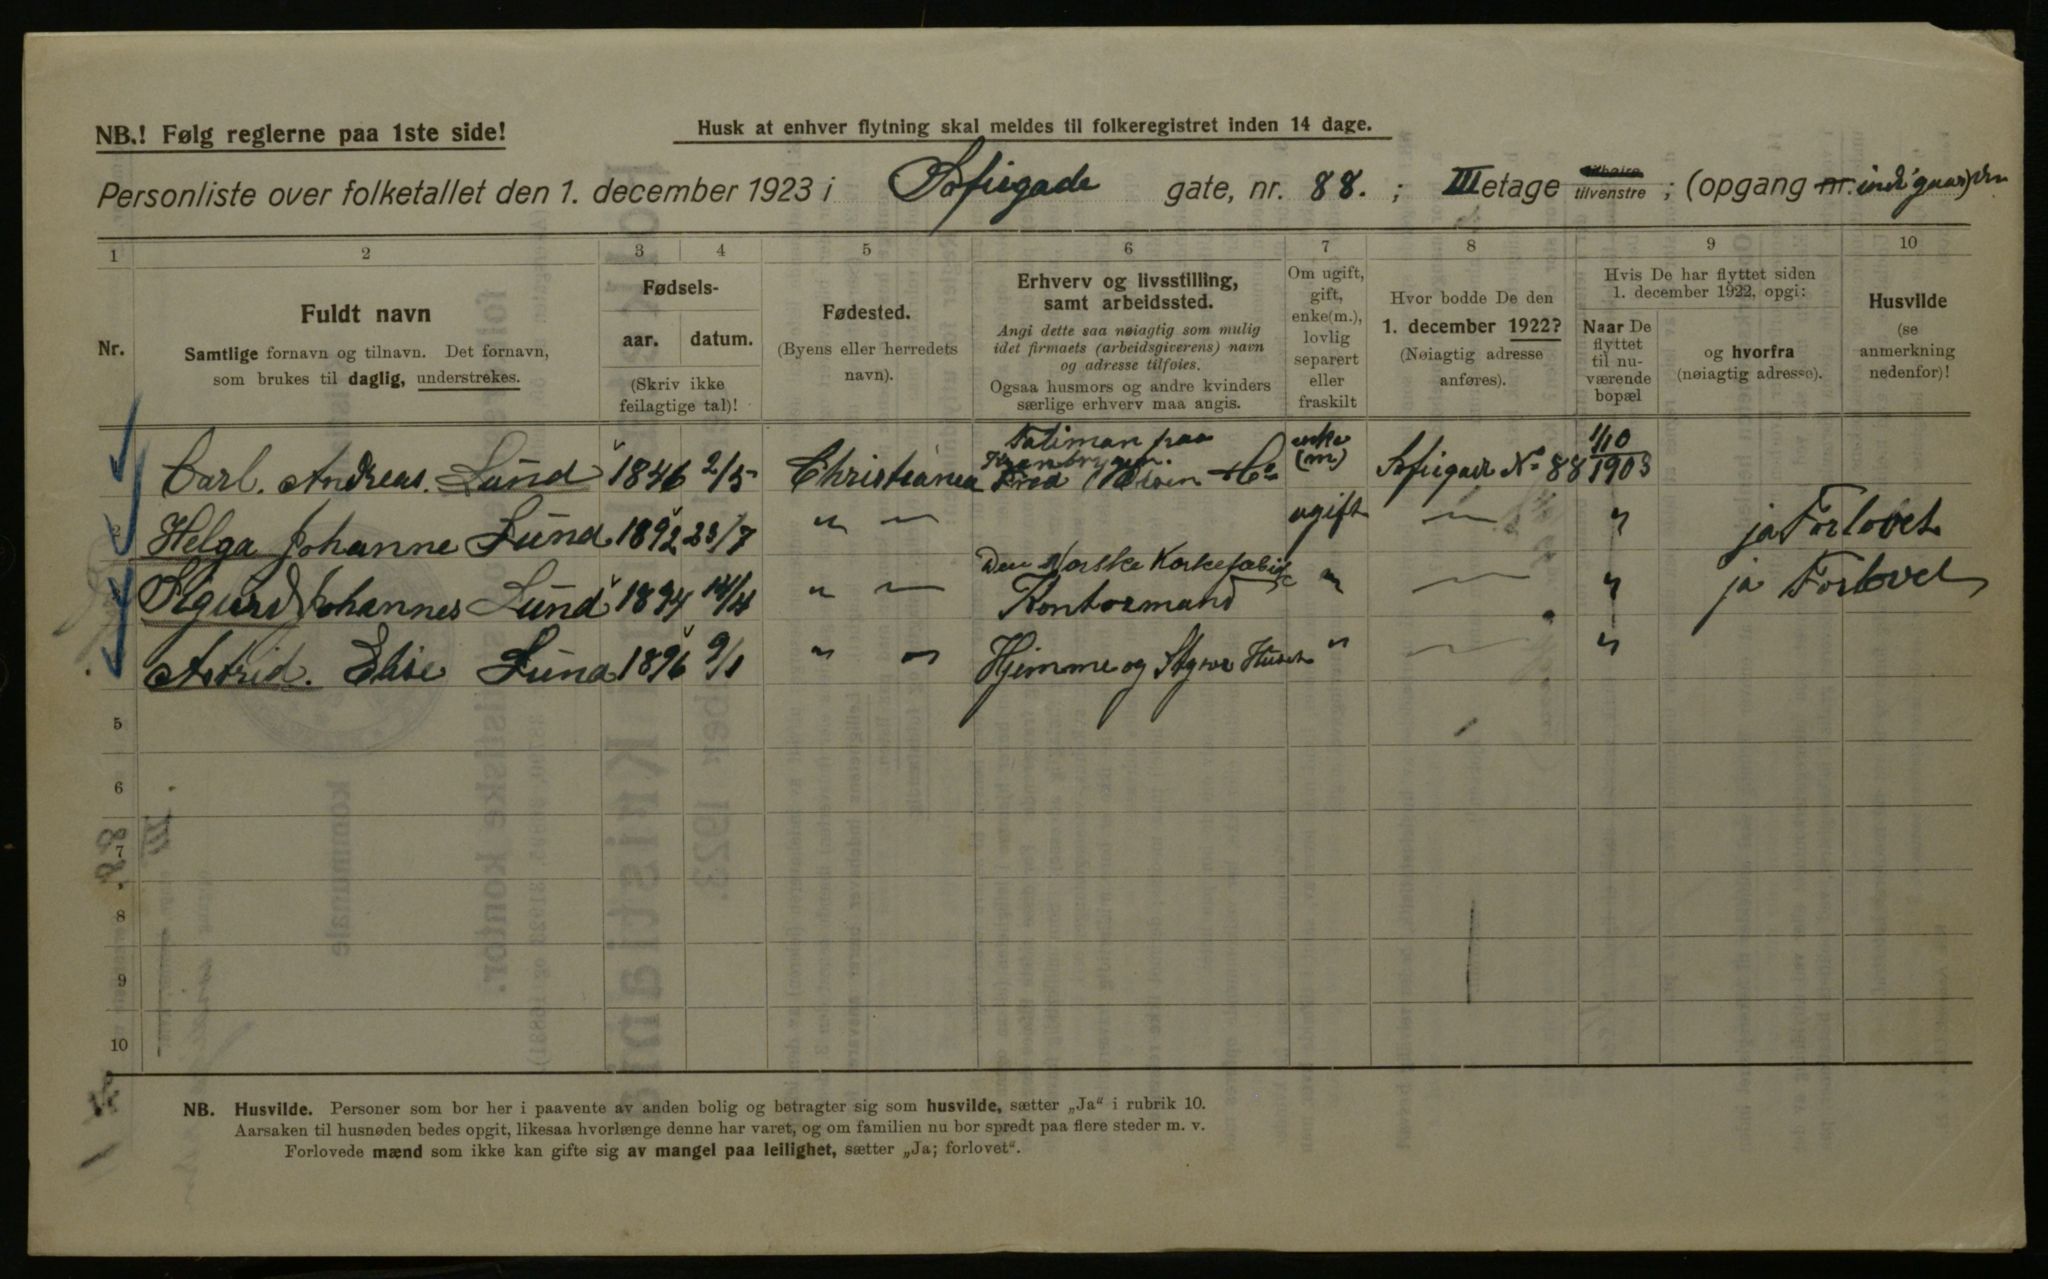 NB.! Følg reglerne paa 1ste side!
Husk at enhver flytning skal meldes til folkeregistret inden 14 dage.
Personliste over folketallet den 1. december 1923 i Sofiegade gate, nr. 88. ; III etage tilhøire tilvenstre ; (opgang nr. indi gaarden)
1 2 3 4 5 6 7 8 9 10
Nr.
Fuldt navn
Samtlige fornavn og tilnavn. Det fornavn,
som brukes til daglig, understrekes.
Fødsels-
aar. datum.
(Skriv ikke
feilagtige tal)!
Fødested.
(Byens eller herredets
navn).
Erhverv og livsstilling,
samt arbeidssted.
Angi dette saa nøiagtig som mulig
idet firmaets (arbeidsgiverens) navn
og adresse tilføies.
Ogsaa husmors og andre kvinders
særlige erhverv maa angis.
Om ugift,
gift,
enke(m.),
lovlig
separert
eller
fraskilt
Hvor bodde De den
1. december 1922?
(Nøiagtig adresse
anføres).
Hvis De har flyttet siden
1. december 1922, opgi:
Naar De
flyttet
til nu-
værende
bopæl
og hvorfra
(nøiagtig adresse).
Husvilde
(se
anmerkning
nedenfor)!
Carl. Andreas. Lund 1846 2/5 Christiania Taliman paa Kranbryggen. Fred Olsen & Co enke (m) Sofiegade No 88 1/10 1903
2 Helga Johanne Lund 1892 23/7 " — ugift — " ja Forlovet
Sigurd Johannes Lund 1894 14/4 " — Den Norske Korkefabrik Kontormand " — " ja Forlovet
Astrid. Elise Lund 1896 9/1 " " Hjemme og Styre Huset " — "
5
6
7
8
9
10
NB. Husvilde. Personer som bor her i paavente av anden bolig og betragter sig som husvilde, sætter „Ja“ i rubrik 10.
Aarsaken til husnøden bedes opgit, likesaa hvorlænge denne har varet, og om familien nu bor spredt paa flere steder m. v.
Forlovede mænd som ikke kan gifte sig av mangel paa leilighet, sætter „Ja; forlovet“.